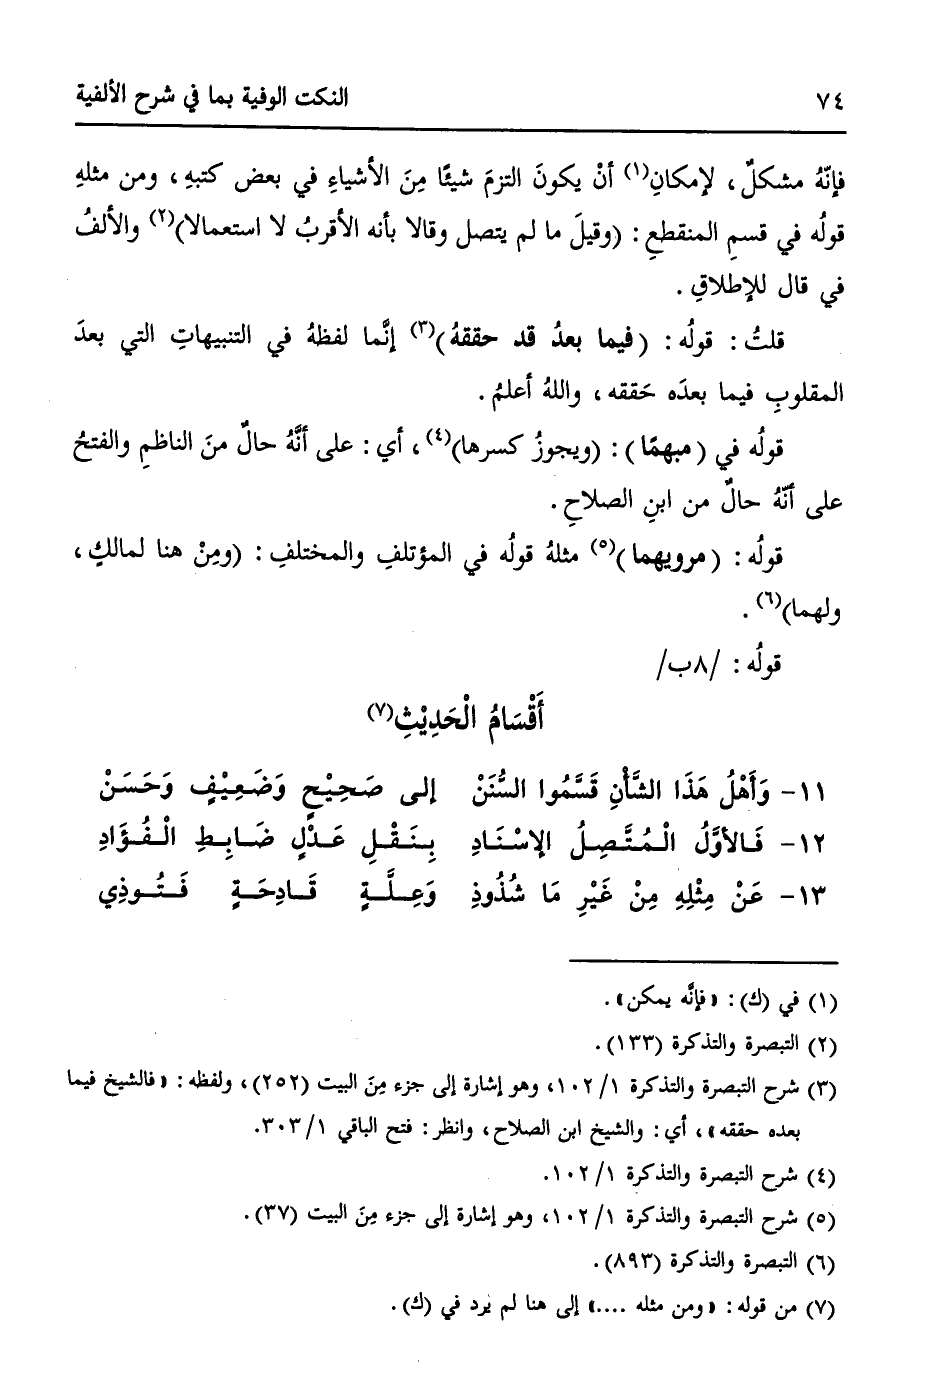 ٧٤ النكت الوفية بما في شرح الألفية
فإنّهُ مشكلٌ، لإمكانِ(١) أنْ يكونَ التزمَ شيئًا مِنَ الأشياءِ في بعض كتبهِ، ومن مثلهِ
قولُه في قسمِ المنقطعِ: (وقيلَ ما لم يتصل وقالا بأنه الأقربُ لا استعمالا)(٢) والألفُ
في قال للإطلاقِ.
قلتُ: قولُه: (فيما بعدُ قد حققهُ)(٣) إنَّما لفظهُ في التنبيهاتِ التي بعدَ
المقلوبِ فيما بعدَه حَققه، واللهُ أعلمُ.
قولُه في (مبهمًا): (ويجوزُ كسرها)(٤)، أي: على أنَّهُ حالٌ منَ الناظمِ والفتحُ
على أنّهُ حالٌ من ابنِ الصلاحِ.
قولُه: (مرويهما)(٥) مثلهُ قولُه في المؤتلفِ والمختلفِ: (ومِنْ هنا لمالكٍ،
ولهما)(٦).
قولُه: /٨ب/
أَقْسَامُ الْحَدِيْثِ(٧)
١١- وَأَهْلُ هَذَا الشَّأْنِ قَسَّمُوا السُّنَنْ إلى صَحِيْحٍ وَضَعِيْفٍ وَحَسَنْ
١٢- فَالأوَّلُ الْمُتَّصِلُ الإسْنَادِ بِنَقْلِ عَدْلٍ ضَابِطِ الْفُؤَادِ
١٣- عَنْ مِثْلِهِ مِنْ غَيْرِ مَا شُذُوذِ وَعِلَّةٍ قَادِحَةٍ فَتُوذِي
(١) في (ك): «فإنَّه يمكن».
(٢) التبصرة والتذكرة (١٣٣).
(٣) شرح التبصرة والتذكرة ١/ ١٠٢، وهو إشارة إلى جزء مِنَ البيت (٢٥٢)، ولفظه: «فالشيخ فيما
بعده حققه»، أي: والشيخ ابن الصلاح، وانظر: فتح الباقي ١/ ٣٠٣.
(٤) شرح التبصرة والتذكرة ١/ ١٠٢.
(٥) شرح التبصرة والتذكرة ١/ ١٠٢، وهو إشارة إلى جزء مِنَ البيت (٣٧).
(٦) التبصرة والتذكرة (٨٩٣).
(٧) من قوله: «ومن مثله ....» إلى هنا لم يَرد في (ك).